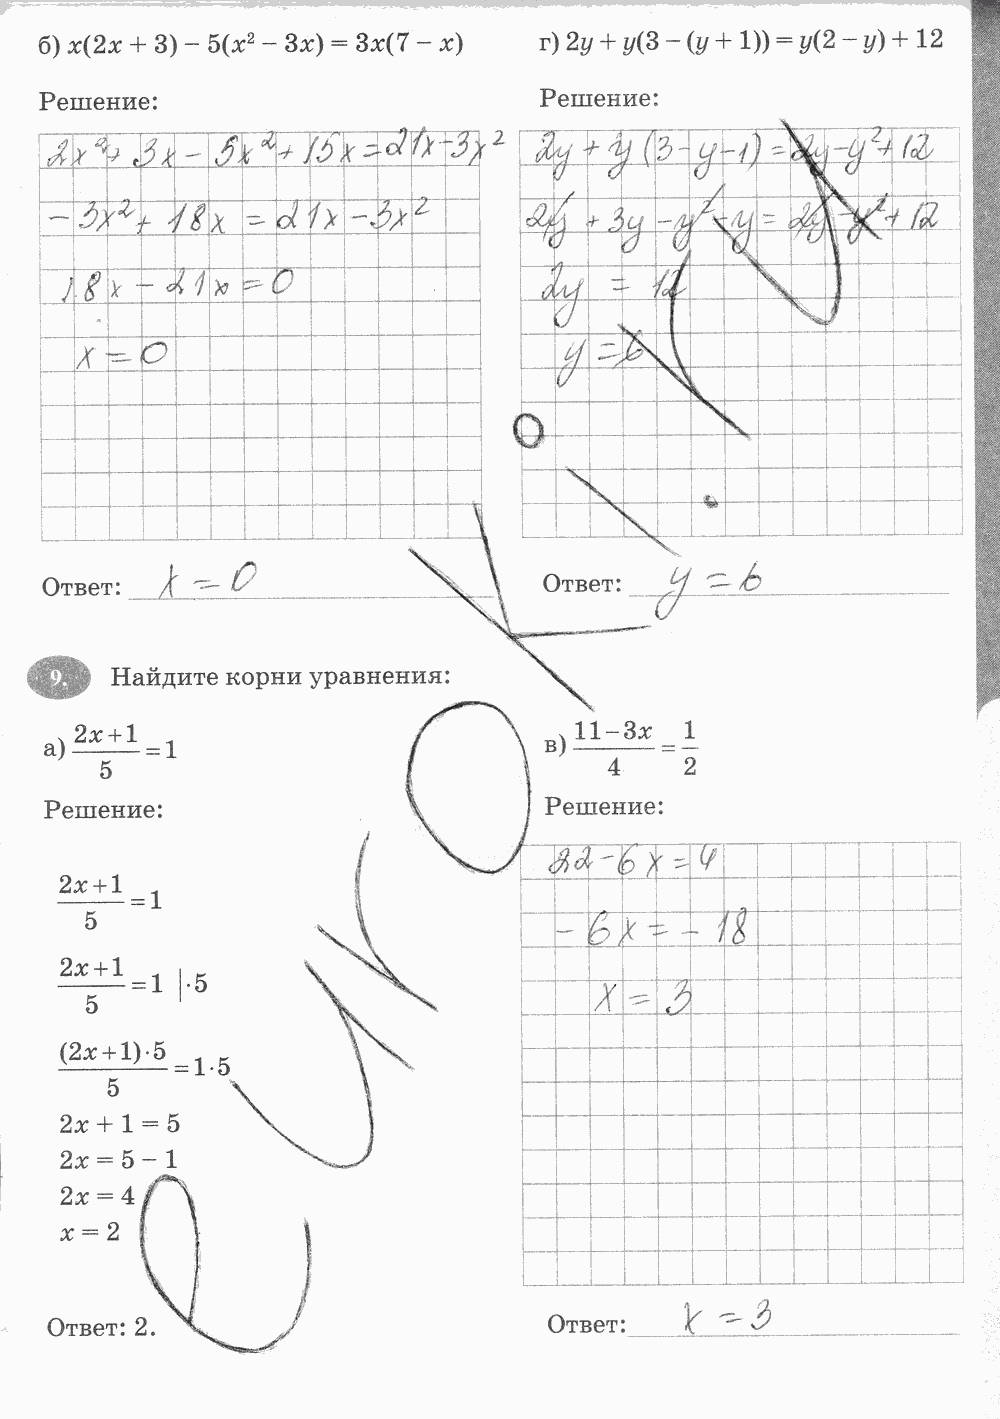 б) x(2x + 3) − 5(x² − 3x) = 3x(7 − x)
Решение:
2x² + 3x − 5x² + 15x = 21x − 3x²
− 3x² + 18x = 21x − 3x²
18x − 21x = 0
x = 0
Ответ: x = 0
г) 2y + y(3 − (y + 1)) = y(2 − y) + 12
Решение:
2y + y (3 − y − 1) = 2y − y² + 12
2y + 3y − y² − y = 2y − y² + 12
2y = 12
y = 6
Ответ: y = 6
9. Найдите корни уравнения:
а) (2x + 1)/5 = 1
Решение:
(2x + 1)/5 = 1
(2x + 1)/5 = 1 |·5
((2x + 1)·5)/5 = 1·5
2x + 1 = 5
2x = 5 − 1
2x = 4
x = 2
Ответ: 2.
в) (11 − 3x)/4 = 1/2
Решение:
22 − 6x = 4
− 6x = − 18
x = 3
Ответ: x = 3
еуроки.ру